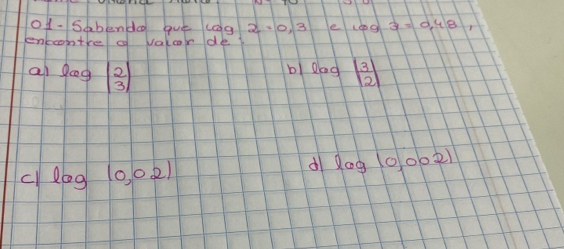 01 - Sabendo que Log 2 = 0,3 e log 3 = 0,48,
encontre o valor de:
a) log (2/3) b) log (3/2)
c) log (0,02) d) log (0,002)